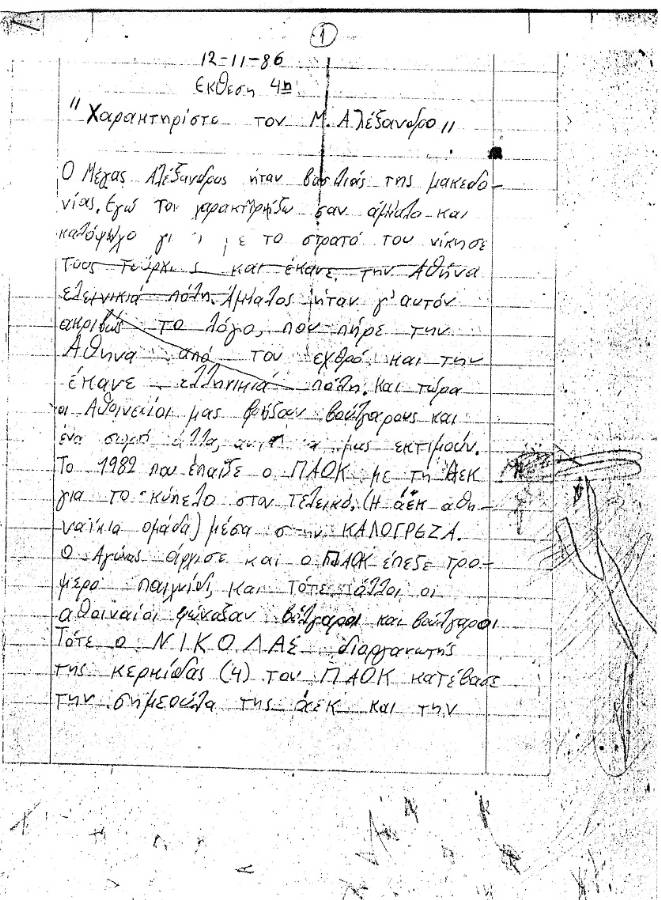 1
12-11-86
Εκθεση 4η
"Χαρακτηρίστε τον Μ. Αλέξανδρο"
Ο Μέγας Αλέξανδρος ήταν βασιλιάς της μακεδο-
νίας. Εγώ τον χαρακτηρίζω σαν άμαλο και
καλόψυχο γι με το στρατό του νίκησε
τους τούρκους και έκανε την Αθήνα
ελεινικιά πόλη. Άμαλος ήταν γι' αυτόν
ακριβώς το λόγο, που πήρε την
Αθηνα από τον εχθρό και την
έκανε ελληνικιά πόλη. Και τώρα
οι Αθηνείοι μας φωνάζουν βούλγαρους και
ένα σωρό άλλα, μας εκτιμούν.
Το 1982 που έπαιξε ο ΠΑΟΚ με τη ΑΕΚ
για το κύπελο στον τελεικό. (Η άεκ αθη-
ναϊκια ομάδα) μέσα στην ΚΑΛΟΓΡΕΖΑ.
Ο Αγώνας άρχισε και ο ΠΑΟΚ έπεξε τρο-
μερό παιχνίδι, και τότε άλλοι οι
αθοιναίοι φώναξαν βούλγαροι και βούλγαροι
Τότε ο ΝΙΚΟΛΑΣ διοργανωτής
της κερκίδας (4) του ΠΑΟΚ κατέβασε
την σημεούλα της άεκ και την